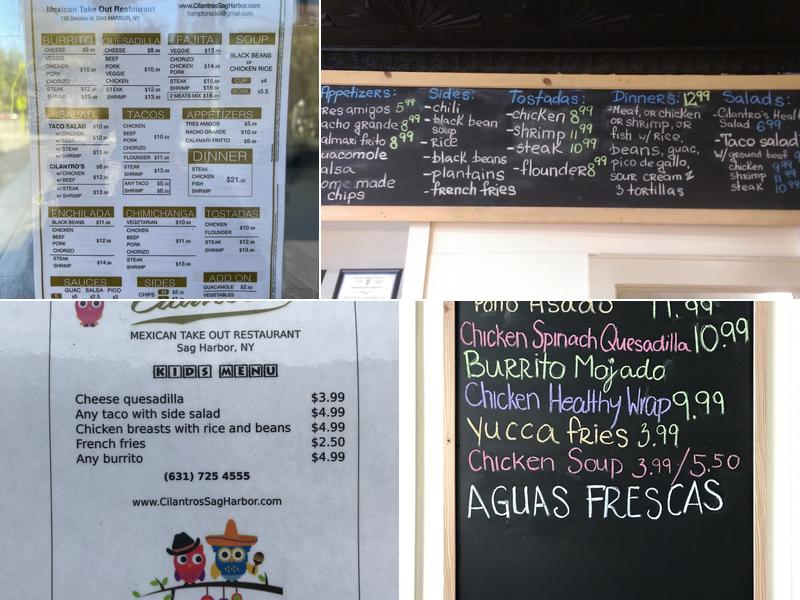 Mexican Take Out Restaurant
www.CilantrosSagHarbor.com
SAG HARBOR, NY
BURRITO
CHEESE $8.99
VEGGIE
CHICKEN $10.99
PORK
CHORIZO
STEAK
SHRIMP $13.99
QUESADILLA
CHEESE $8.99
BEEF
PORK $10.99
VEGGIE
CHICKEN
STEAK $12.99
SHRIMP $13.99
FAJITA
VEGGIE $13.99
CHORIZO
CHICKEN $14.99
PORK
STEAK $15.99
SHRIMP $16.99
2 MEATS MIX $18.99
SOUP
BLACK BEANS
or
CHICKEN RICE
CUP $4
BOWL $5.5
SALAD
TACO SALAD $10.99
w/ CHICKEN
w/ BEEF $12.99
w/ STEAK $13.99
w/ SHRIMP
CILANTRO'S
w/ CHICKEN
w/ BEEF $12.99
w/ STEAK $13.99
w/ SHRIMP
TACOS
CHICKEN
BEEF
PORK $10.99
CHORIZO
FLOUNDER $11.99
STEAK $13.99
SHRIMP
ANY TACO $5.50
SHRIMP $6.50
APPETIZERS
TRES AMIGOS $5.99
NACHO GRANDE $10.99
CALAMARI FRITTO $9.99
DINNER
STEAK
CHICKEN $21.00
FISH
SHRIMP
ENCHILADA
BLACK BEANS $11.99
CHICKEN
BEEF $12.99
PORK
CHORIZO
STEAK $14.99
SHRIMP
CHIMICHANGA
VEGETARIAN $10.99
CHICKEN
BEEF $11.99
PORK
CHORIZO
STEAK $13.99
SHRIMP
TOSTADAS
CHICKEN $10.99
FLOUNDER
STEAK $12.99
SHRIMP $13.99
SAUCES
GUAC SALSA PICO
SIDES
CHIPS
ADD ON
GUACAMOLE $2.50
VEGETABLES
Appetizers:
res amigos 5.99
acho grande 8.99
almari frito 8.99
uacomole
alsa
ome made
chips
Sides:
-chili
-black bean
soup
-Rice
-black beans
-plantains
-french fries
Tostadas:
-chicken 8.99
-shrimp 11.99
-steak 10.99
-flounder 8.99
Dinners: 12.99
-Meat, or chicken
or shrimp, or
fish w/ Rice,
beans, guac,
pico de gallo,
sour cream &
3 tortillas
Salads:
-Cilantro's Heal
Salad 6.99
-Taco salad
w/ ground beef
chicken
shrimp
steak
MEXICAN TAKE OUT RESTAURANT
Sag Harbor, NY
KIDS MENU
Cheese quesadilla $3.99
Any taco with side salad $4.99
Chicken breasts with rice and beans $4.99
French fries $2.50
Any burrito $4.99
(631) 725 4555
www.CilantrosSagHarbor.com
Pollo Asado 11.99
Chicken Spinach Quesadilla 10.99
Burrito Mojado
Chicken Healthy Wrap 9.99
Yucca fries 3.99
Chicken Soup 3.99/5.50
AGUAS FRESCAS